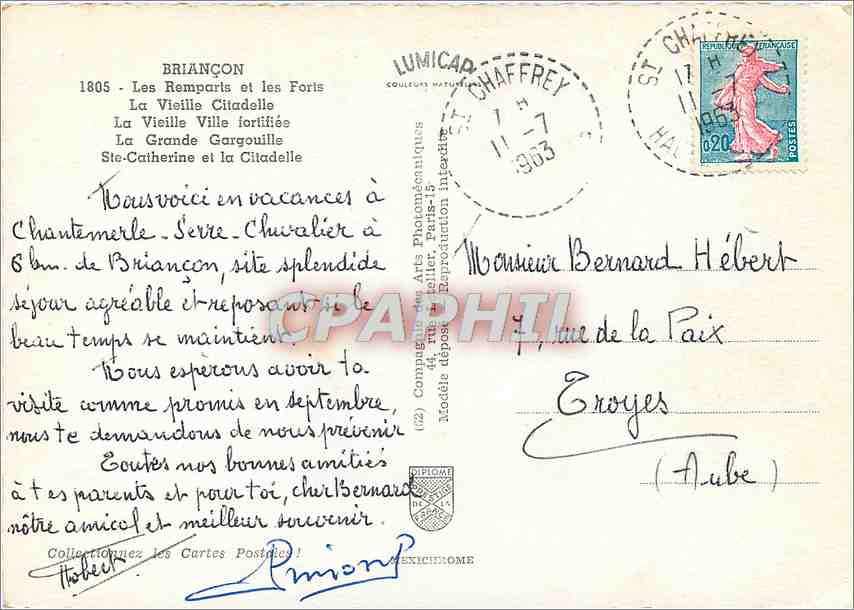 BRIANÇON
1805 - Les Remparts et les Forts
La Vieille Citadelle
La Vieille Ville fortifiée
La Grande Gargouille
Ste-Catherine et la Citadelle
Nous voici en vacances à
Chantemerle - Serre - Chevalier à
6 km. de Briançon, site splendide
séjour agréable et reposant si le
beau temps se maintient.
Nous espérons avoir ta
visite comme promis en septembre,
nous te demandons de nous prévenir
Toutes nos bonnes amitiés
à tes parents et pour toi, cher Bernard
nôtre amical et meilleur souvenir.
Collectionnez les Cartes Postales!
LUMICAP
COULEURS NATURELLES
(C2) Compagnie des Arts Photomécaniques
44, rue Letellier, Paris-15
Modèle déposé Reproduction interdite
DIPLOME
PRESTIGE
DE LA
FRANCE
MEXICHROME
ST CHAFFREY
7 H
11 -7
1963
ST CHAFFREY
17 H
11 -7
1963
REPUBLIQUE FRANÇAISE
0,20
POSTES
Monsieur Bernard Hébert
7, rue de la Paix
Troyes
(Aube)
CPAPHIL